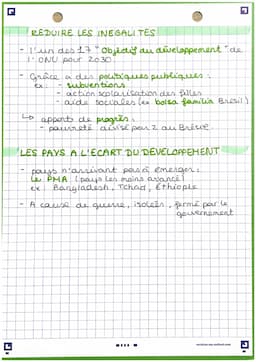 REDUIRE LES INEGALITES
- l'un des 17 "Objectif du développement" de
l'ONU pour 2030
- Grâce a des politiques publiques :
ex : - subventions
- action scolarisation des filles
- aide sociales (ex bolsa familia Brésil)
↳ apports de progrès :
- pauvreté divisé par 2 au Brésil
LES PAYS A L'ECART DU DEVELOPPEMENT
- pays n'arrivant pas à émerger :
le PMA (pays les moins avancé)
ex Bangladesh, Tchad, Ethiopie
- A cause de guerre, isolés, fermé par le
gouvernement